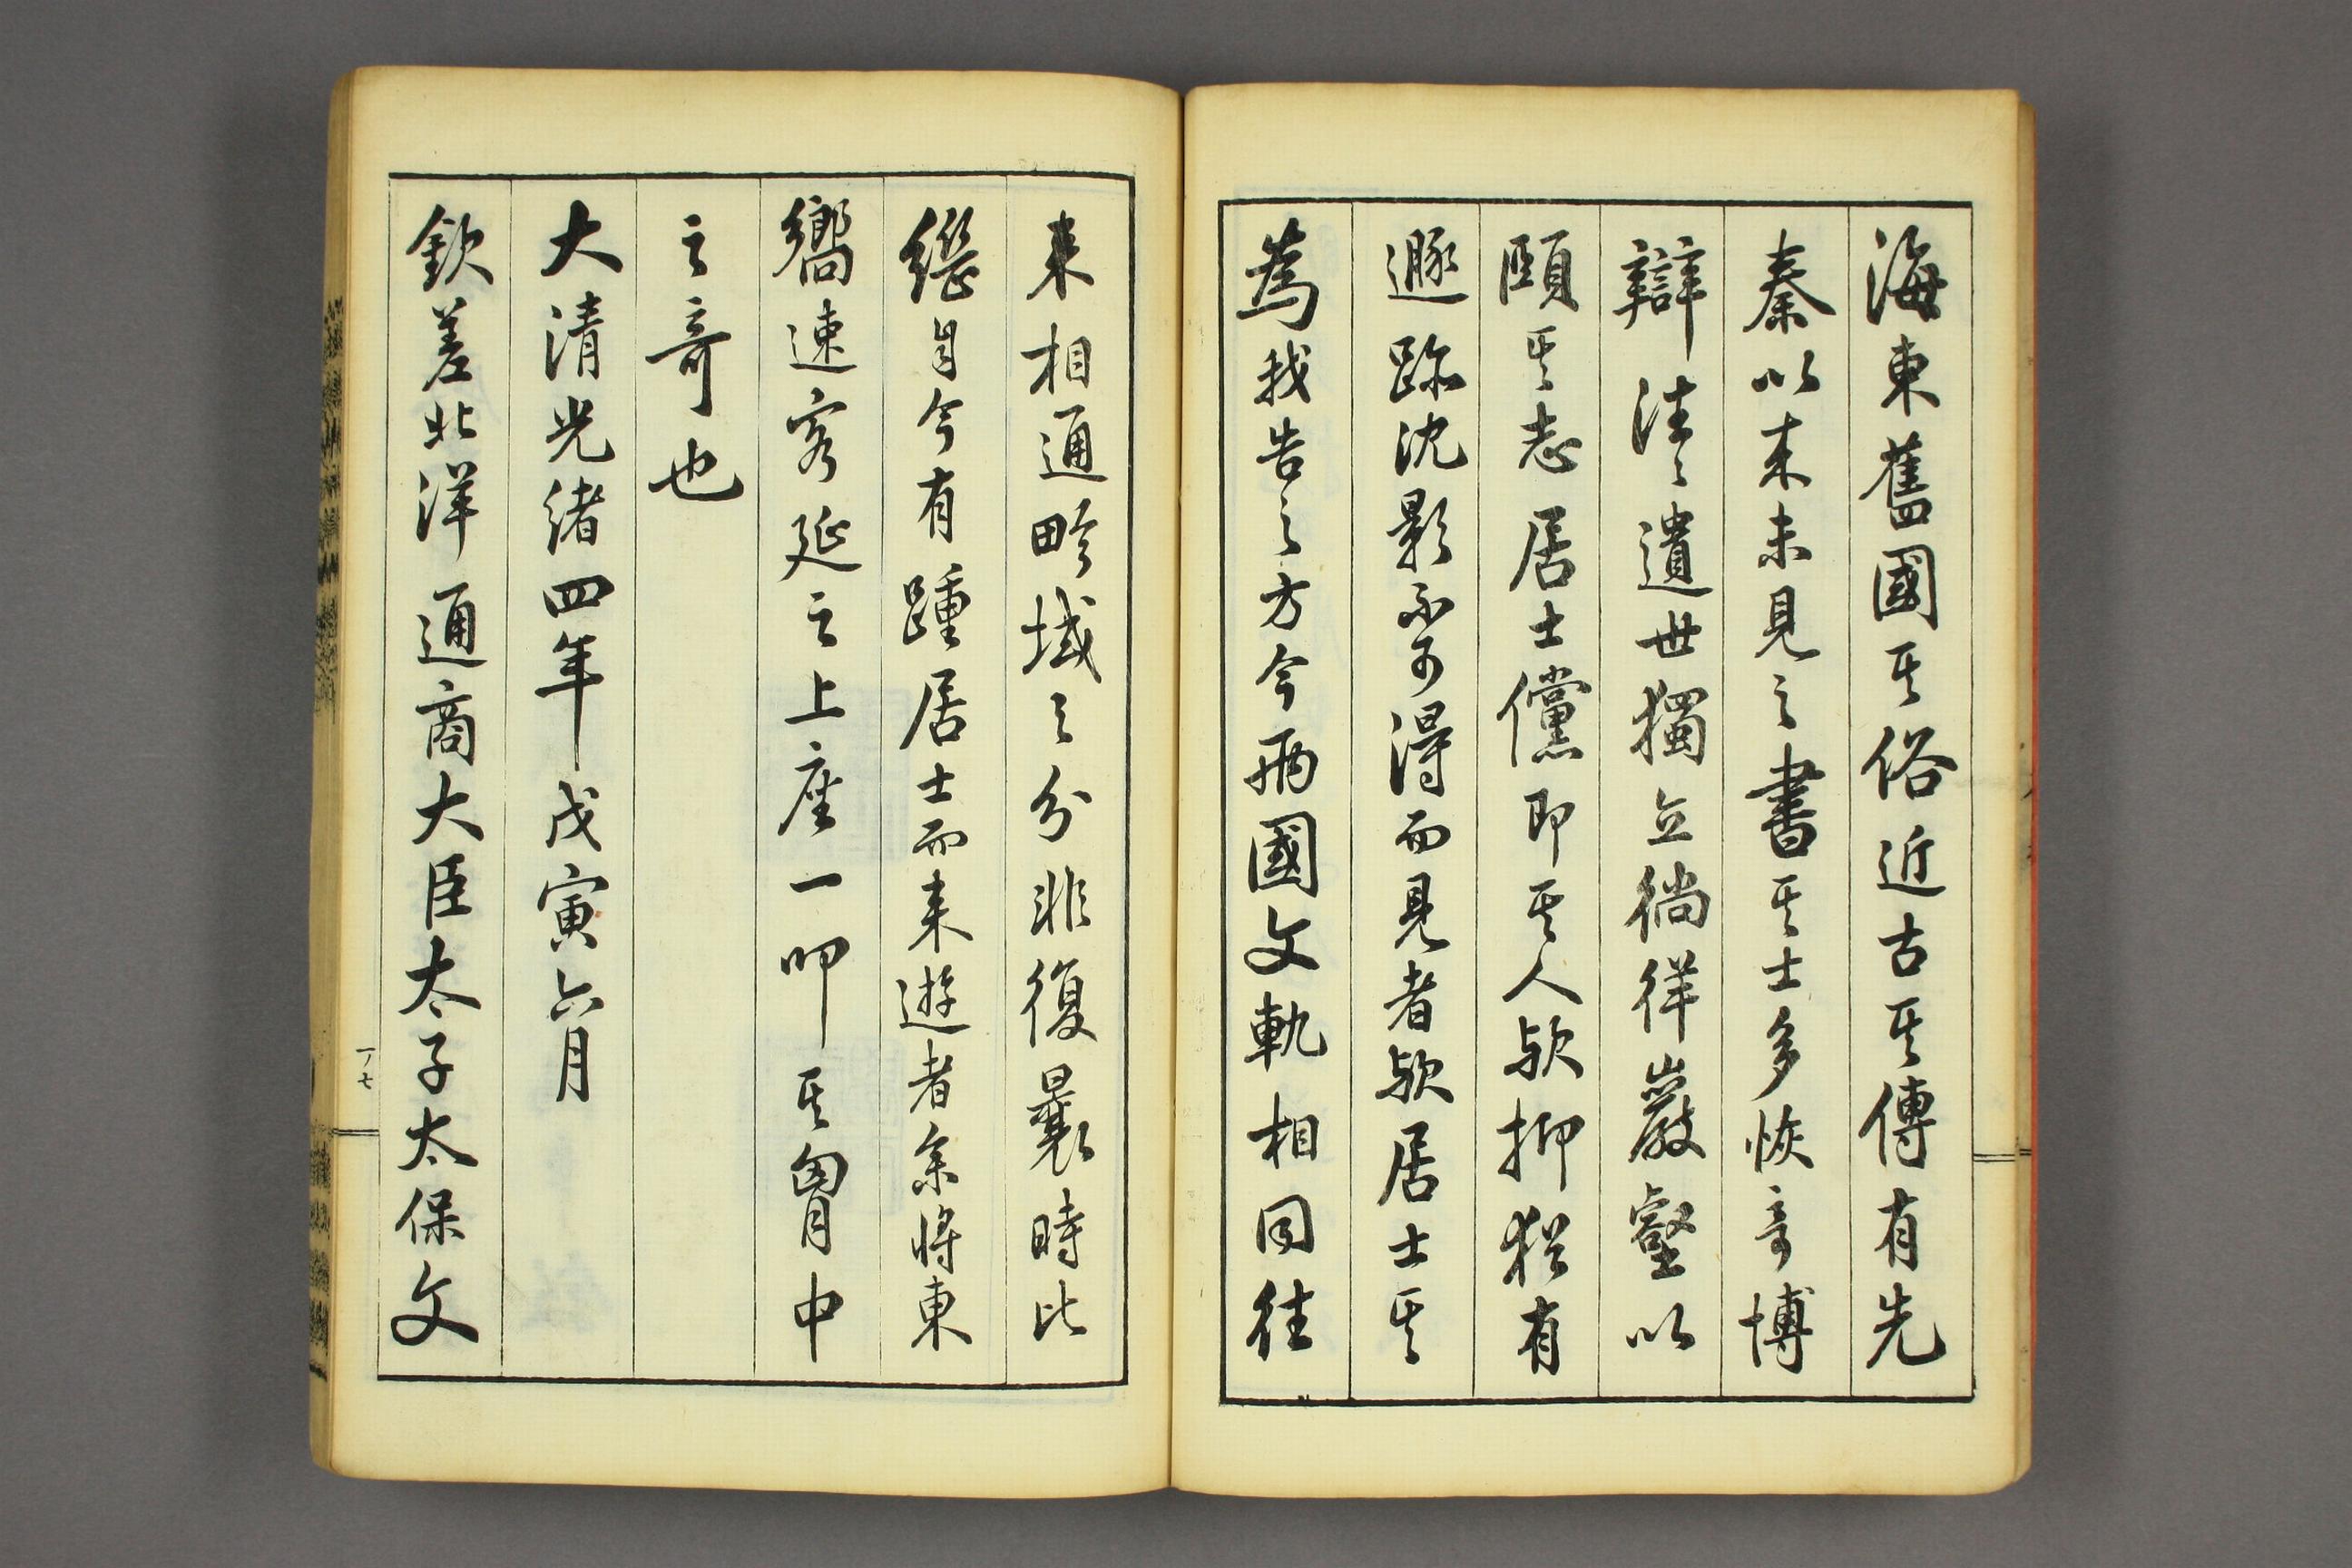 海東舊國其俗近古其傳有先
秦以來未見之書其士多恢奇博
辯洼〻遺世獨立徜徉巖壑以
頤其志居士儻即其人歟抑猶有
遯跡沈影不可得而見者歟居士其
為我告之方今兩國文軌相同往
來相通畛域之分非復曩時比
繼自今有踵居士而來遊者余將東
嚮速客延之上座一叩其胷中
之奇也
大清光緒四年戊寅六月
欽差北洋通商大臣太子太保文
一ノ七